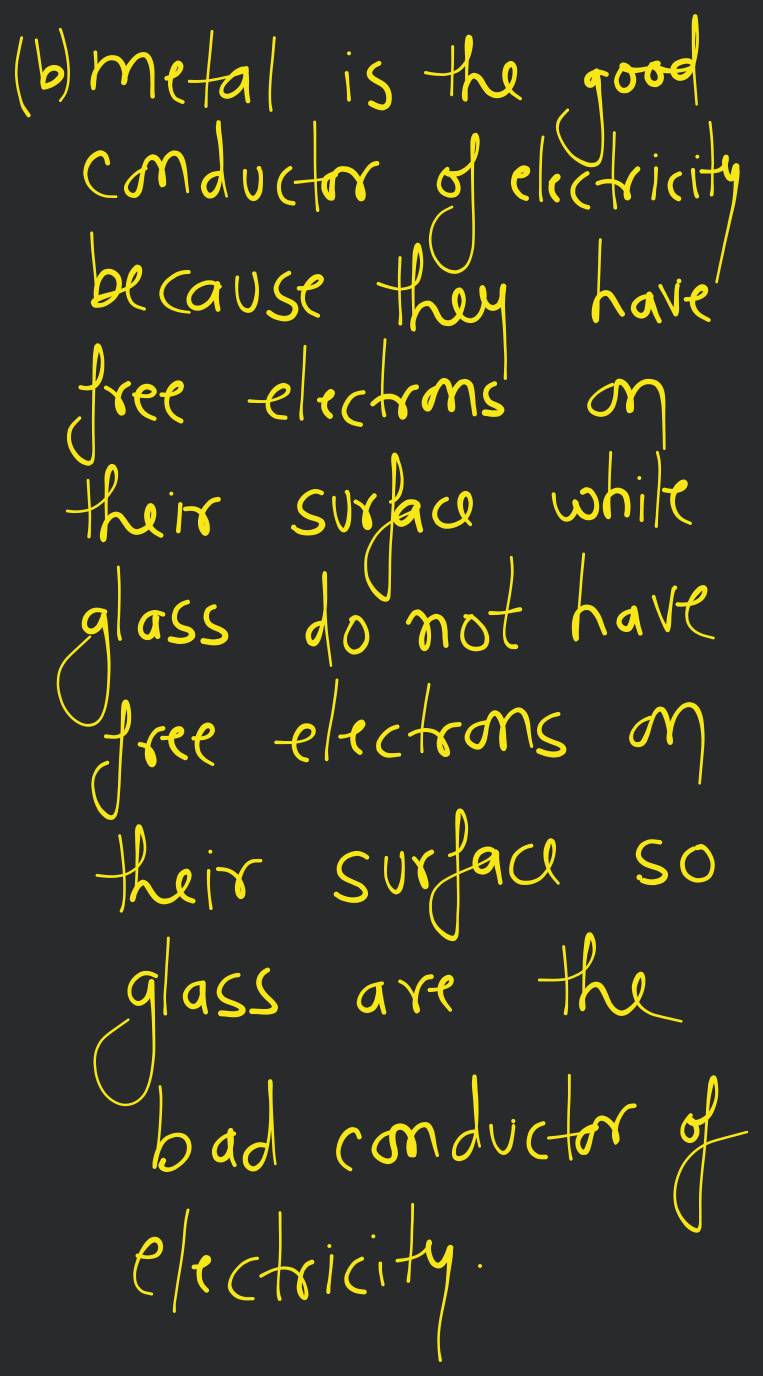 (b) metal is the good
conductor of electricity
because they have
free electrons on
their surface while
glass do not have
free electrons on
their surface so
glass are the
bad conductor of
electricity.